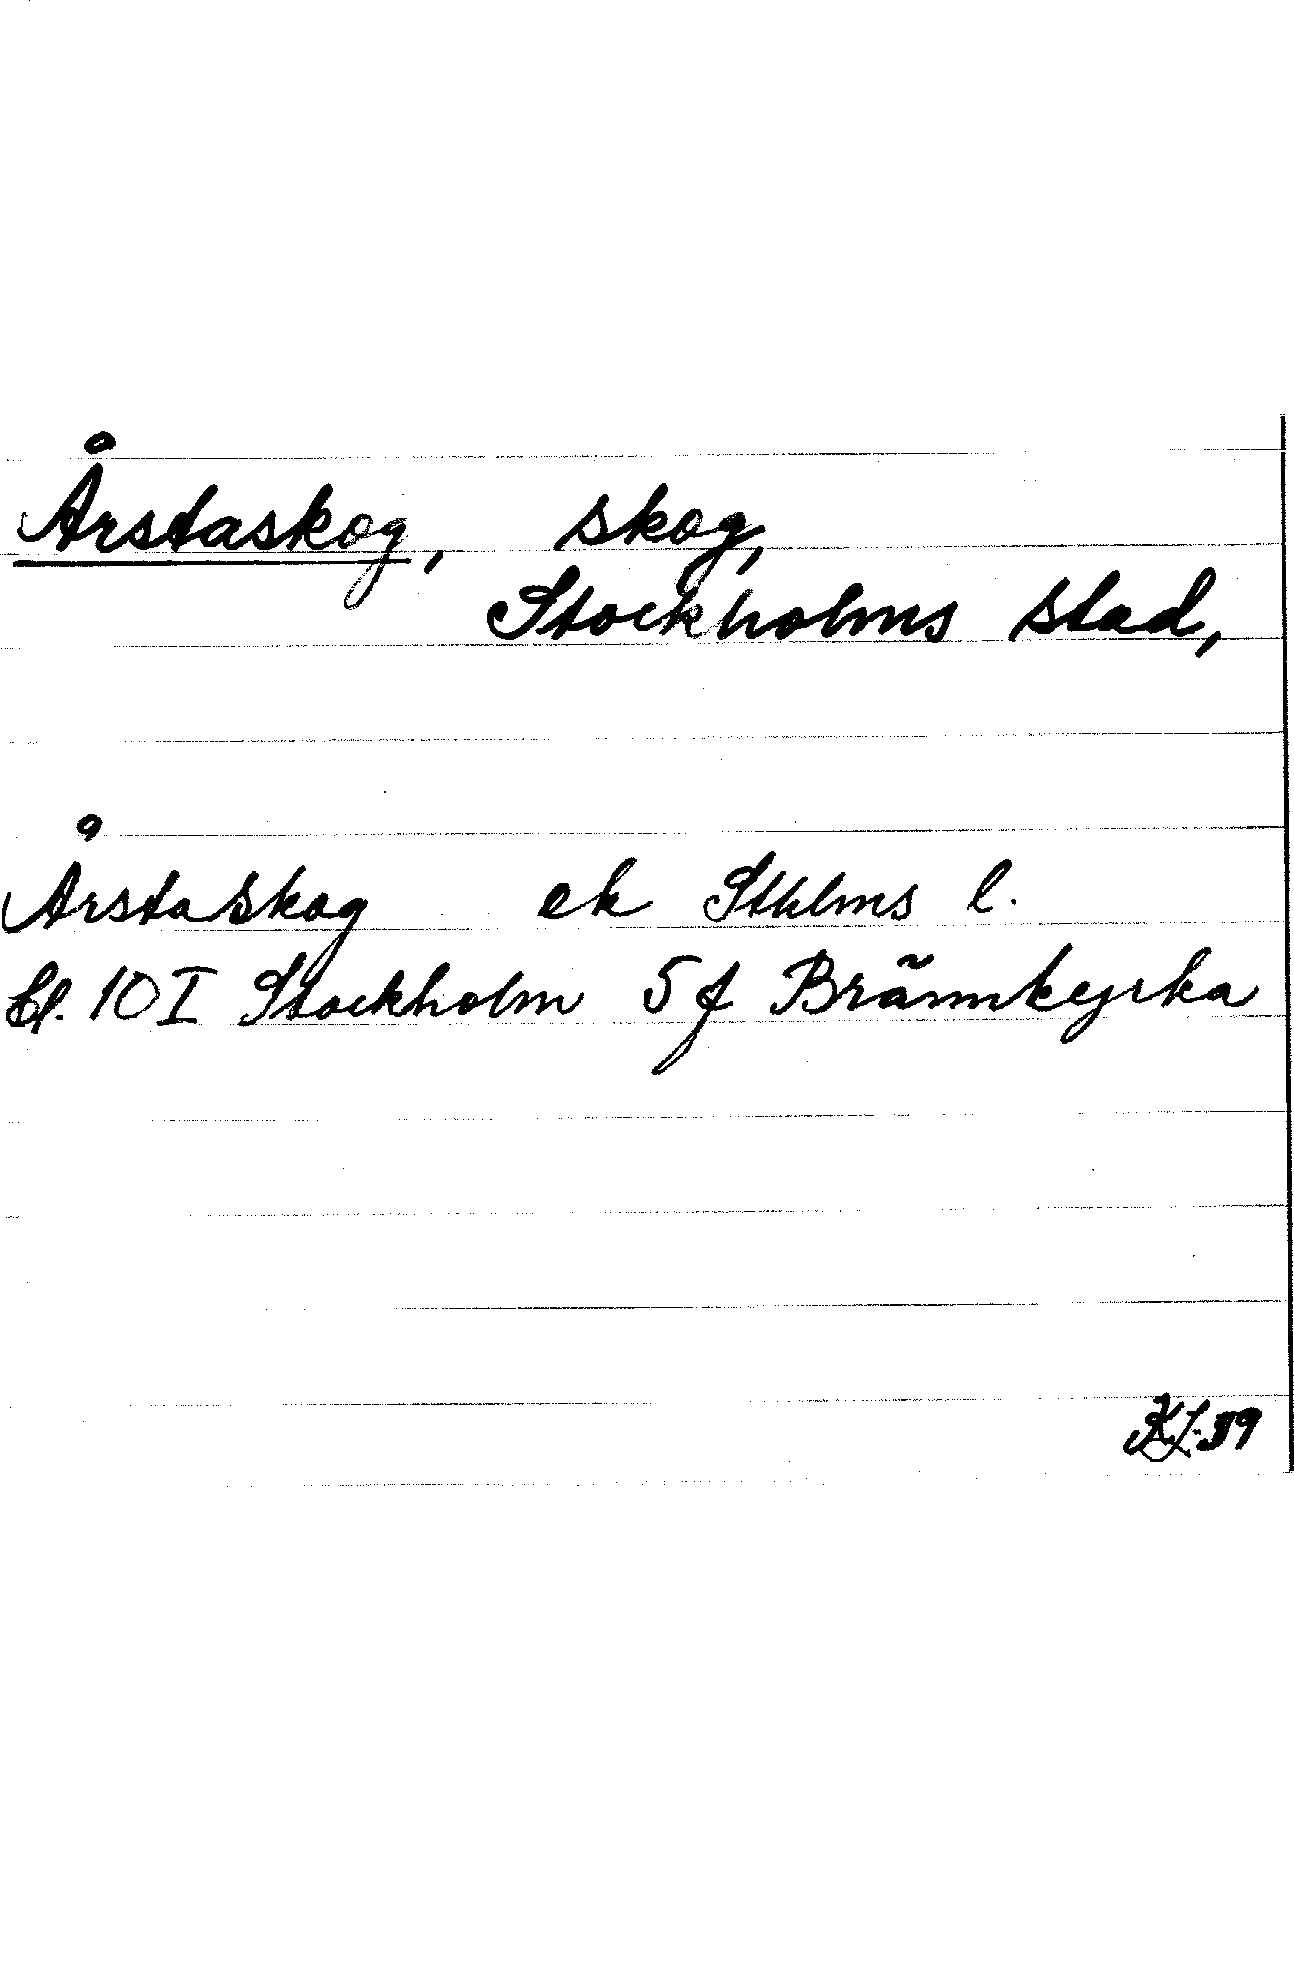 Årstaskog, skog,
Stockholms stad,
Årstaskog ek Sthlms l.
bl. 10 I Stockholm 5 f Brännkyrka